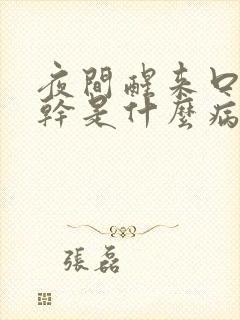 夜間醒來口
幹是什麼病
張磊